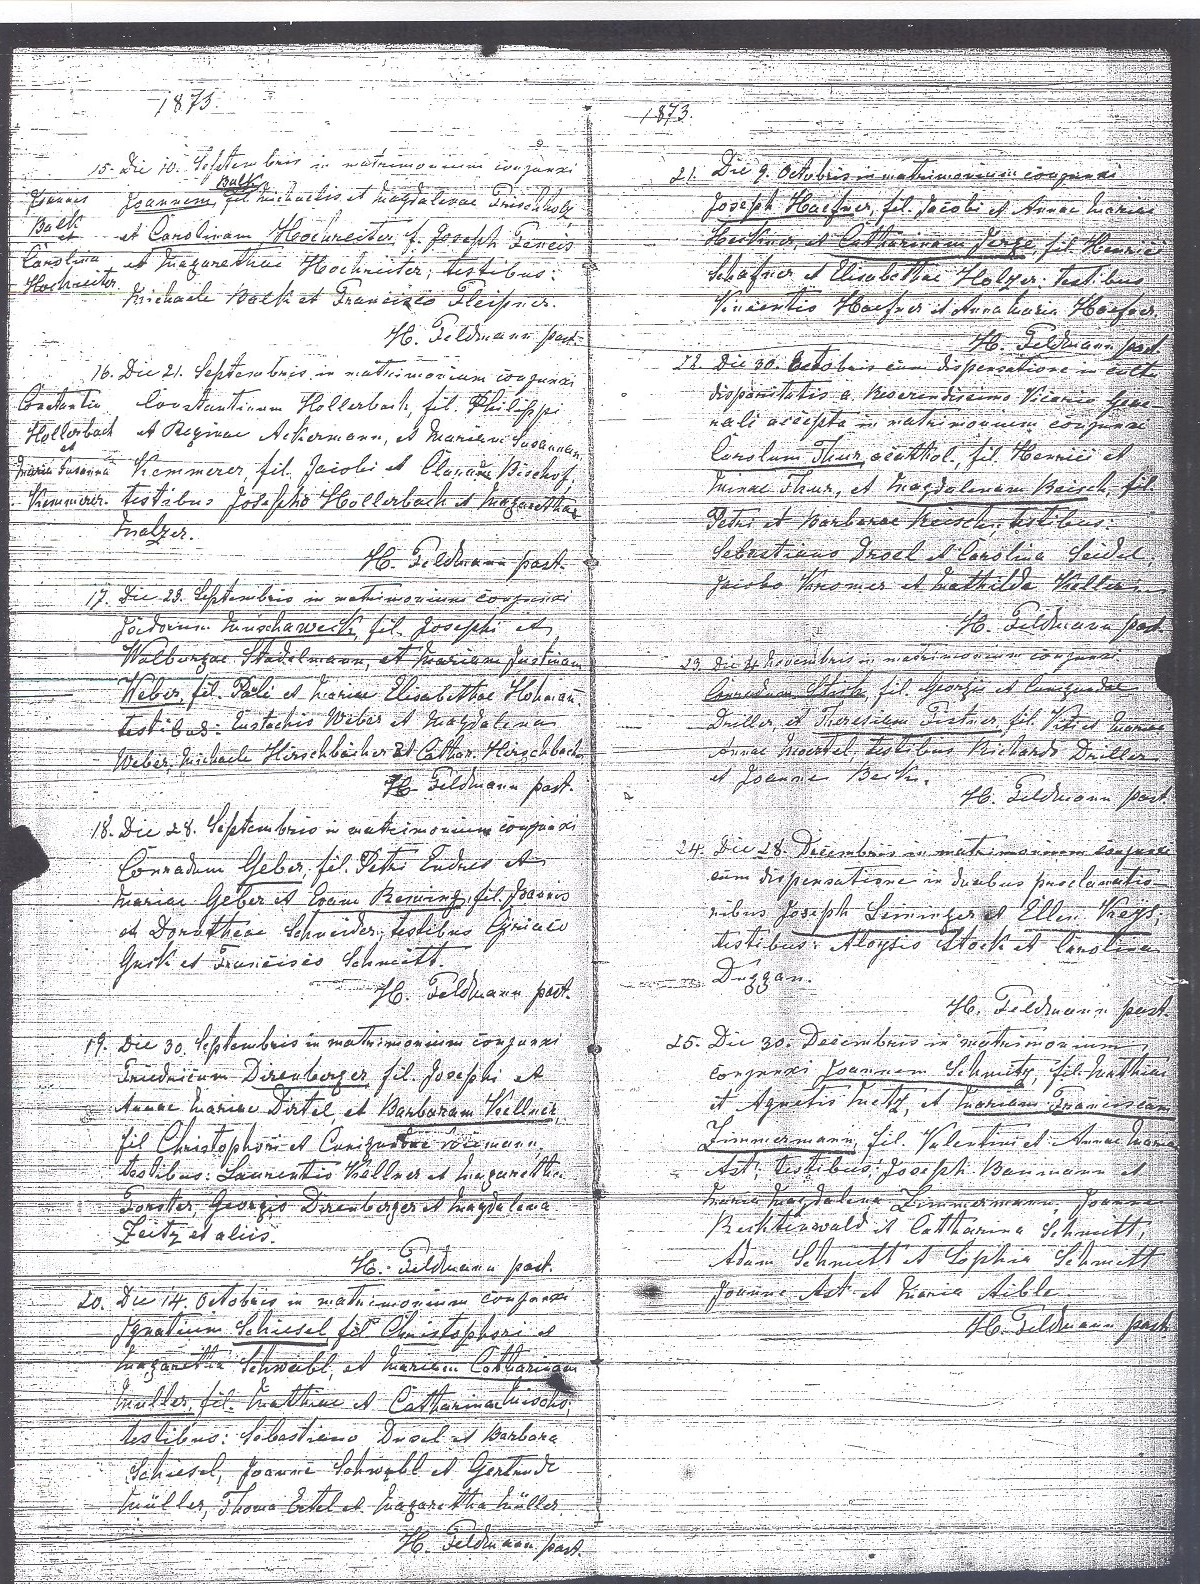 1873.
15. Die 10. Septembris in matrimonium conjunxi
Joannes Balk et Carolina Hochreiter.
Balk
Joannem, fil. Michaelis et Magdalenae Frischholz
et Carolinam Hochreiter, f. Joseph
et Magarethae Hochreiter; testibus:
Michaele Balk et Francisco Fleißner.
H. Feldmann past.
16. Die 21. Septembris in matrimonium conjunxi
Constantin Hollerbach et Maria Susanna Kemmerer.
Constantinum Hollerbach, fil. Philippi
et Reginae Ackermann, et Mariam Susannam
Kemmerer, fil. Jacobi et Bischof,
testibus Josepho Hollerbach et Magaretha
Malzer.
H. Feldmann past.
17. Die 23. Septembris in matrimonium conjunxi
Isidorum Muschaweck, fil. Josephi et
Walburgae Stadelmann, et Mariam Justinam
Weber, fil. Pauli et Mariae Elisabethae Hohmann.
testibus: Eustachio Weber et Magdalena
Weber, Michaele Hirschbacher et Cathar. Hirschbach
H. Feldmann past.
18. Die 28. Septembris in matrimonium conjunxi
Conradum Geber, fil. Petri Endres et
Mariae Geber et Evam Reining, fil.
et Dorotheae Schneider, testibus Ciriaco
et Francisco Schmitt.
H. Feldmann past.
19. Die 30. Septembris in matrimonium conjunxi
Fridricum Direnberger fil. Josephi et
Annae Mariae Dirtel, et Barbaram Kellner,
fil Christophori et Cunigundae
testibus: Laurentio Kellner et Magaretha
Forster, Georgio Direnberger et Magdalena
Zeitz et aliis.
H. Feldmann past.
20. Die 14. Octobris in matrimonium conjunxi
Ignatium Schiesel fil Christophori et
Magaretha Schwabl, et Mariam Catharinam
Müller, fil. Mathiae et Catharinae
testibus: Sebastiano Drsel et Barbara
Schiesel, Joanne Schwabl et Gertrude
Müller, Thoma Ertel et Magaretha Müller.
H. Feldmann past.
1873.
21. Die 9. Octobris in matrimonium conjunxi
Joseph Haefner, fil. Jacobi et Annae Mariae
et Catharinam fil. Henrici
Schafner et Elisabethae Holzer. testibus
Vincentio Haefner et Anna Maria Haefner.
H. Feldmann past.
22. Die 30. Octobris cum dispensatione in cultu
disparitatis a Reverendissimo Vicario Gene-
rali accepta in matrimonium conjunxi
Carolum Thur, acathol., fil. Henrici et
Minae Thur, et Magdalenam Reisch, fil.
Petri et Barbarae Reisch; testibus:
Sebastiano Drsel et Carolina Seidel,
Jacobo Kromer et Mathilda
H. Feldmann past.
23. Die 4 Novembris in matrimonium conjunxi
fil. Georgii et Cunigundae
Driller, et Theresiam Fertner, fil. Viti et Mariae
Annae testibus Richardo Driller
et Joanne Beck.
H. Feldmann past.
24. Die 28. Decembris in matrimonium conjunxi
cum dispensatione in duabus proclamatio-
nibus Joseph Leininger et Ellen Keys;
testibus: Aloysio Stock et Carolina
Duggan.
H. Feldmann past.
25. Die 30. Decembris in matrimonium
conjunxi Joannem Schmitz, fil. Mathiae
et Agnetis Metz, et Mariam Franciscam
Zimmermann, fil. Valentini et Annae Maria
Ast; testibus: Joseph Baumann et
Maria Magdalena Zimmermann, Joanne
Rechtenwald et Catharina Schmitt,
Adam Schmitt et Sophia Schmitt
Joanne Ast et Maria Aible
H. Feldmann past.